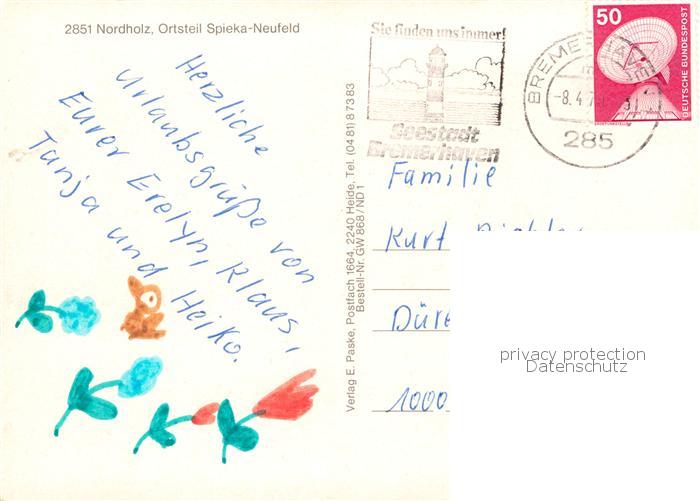 2851 Nordholz, Ortsteil Spieka-Neufeld
Herzliche
Urlaubsgrüße von
Eurer Evelyn, Klaus,
Tanja und Heiko.
Verlag E. Paske, Postfach 1664, 2240 Heide, Tel. (0481) 87383
Bestell-Nr. GW 868/ND1
Sie finden uns immer!
Seestadt
Bremerhaven
BREMERHAVEN
-8.4.7
285
50
DEUTSCHE BUNDESPOST
Familie
Kurt
Düre
1000
privacy protection
Datenschutz